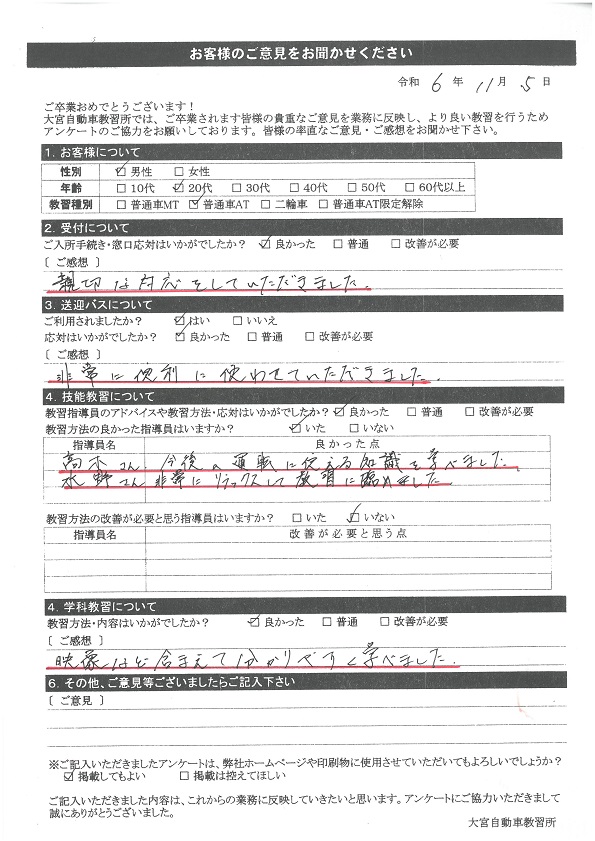 お客様のご意見をお聞かせください
令和 6 年 11 月 5 日
ご卒業おめでとうございます！
大宮自動車教習所では、ご卒業されます皆様の貴重なご意見を業務に反映し、より良い教習を行うため
アンケートのご協力をお願いしております。皆様の率直なご意見・ご感想をお聞かせ下さい。
1. お客様について
性別 ☑男性 □女性
年齢 □10代 ☑20代 □30代 □40代 □50代 □60代以上
教習種別 □普通車MT ☑普通車AT □二輪車 □普通車AT限定解除
2. 受付について
ご入所手続き・窓口応対はいかがでしたか？ ☑良かった □普通 □改善が必要
〔 ご感想 〕
親切な対応をしていただきました。
3. 送迎バスについて
ご利用されましたか？ ☑はい □いいえ
応対はいかがでしたか？ ☑良かった □普通 □改善が必要
〔 ご感想 〕
非常に便利に使わせていただきました。
4. 技能教習について
教習指導員のアドバイスや教習方法・応対はいかがでしたか？ ☑良かった □普通 □改善が必要
教習方法の良かった指導員はいますか？ ☑いた □いない
指導員名 良かった点
高木さん 今後の運転に使える知識を学べました。
水野さん 非常にリラックスして教習に臨めました
教習方法の改善が必要と思う指導員はいますか？ □いた ☑いない
指導員名 改善が必要と思う点
4. 学科教習について
教習方法・内容はいかがでしたか？ ☑良かった □普通 □改善が必要
〔 ご感想 〕
映像など含まえて分かりやすく学べました。
6. その他、ご意見等ございましたらご記入下さい
〔 ご意見 〕
※ご記入いただきましたアンケートは、弊社ホームページや印刷物に使用させていただいてもよろしいでしょうか？
☑掲載してもよい □掲載は控えてほしい
ご記入いただきました内容は、これからの業務に反映していきたいと思います。アンケートにご協力いただきまして
誠にありがとうございました。
大宮自動車教習所